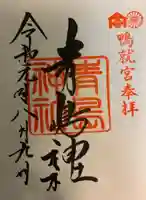 鴨就宮奉拝
青島神社
青島神社
令和元年八月九日